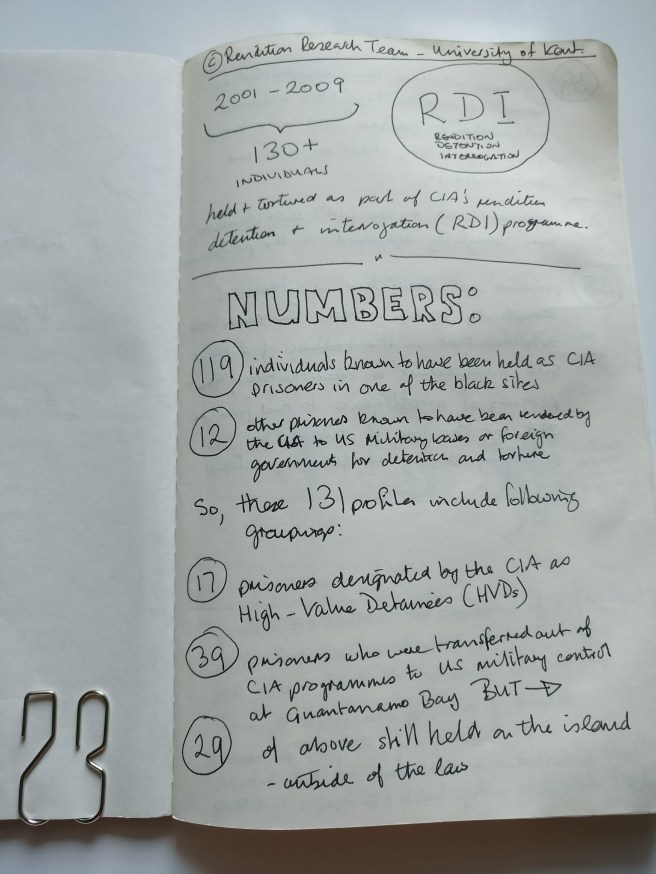 © Rendition Research Team - University of Kent.
2001 - 2009
130+
INDIVIDUALS
RDI
RENDITION
DETENTION
INTERROGATION
held + tortured as part of CIA's rendition
detention + interrogation (RDI) programme.
NUMBERS:
119 individuals known to have been held as CIA
prisoners in one of the black sites
12 other prisoners known to have been rendered by
the CIA to US Military bases or foreign
governments for detention and torture
So, these 131 profiles include following
groupings:
17 prisoners designated by the CIA as
High-Value Detainees (HVDs)
39 prisoners who were transferred out of
CIA programmes to US military control
at Guantanamo Bay BUT →
29 of above still held on the island
- outside of the law
23